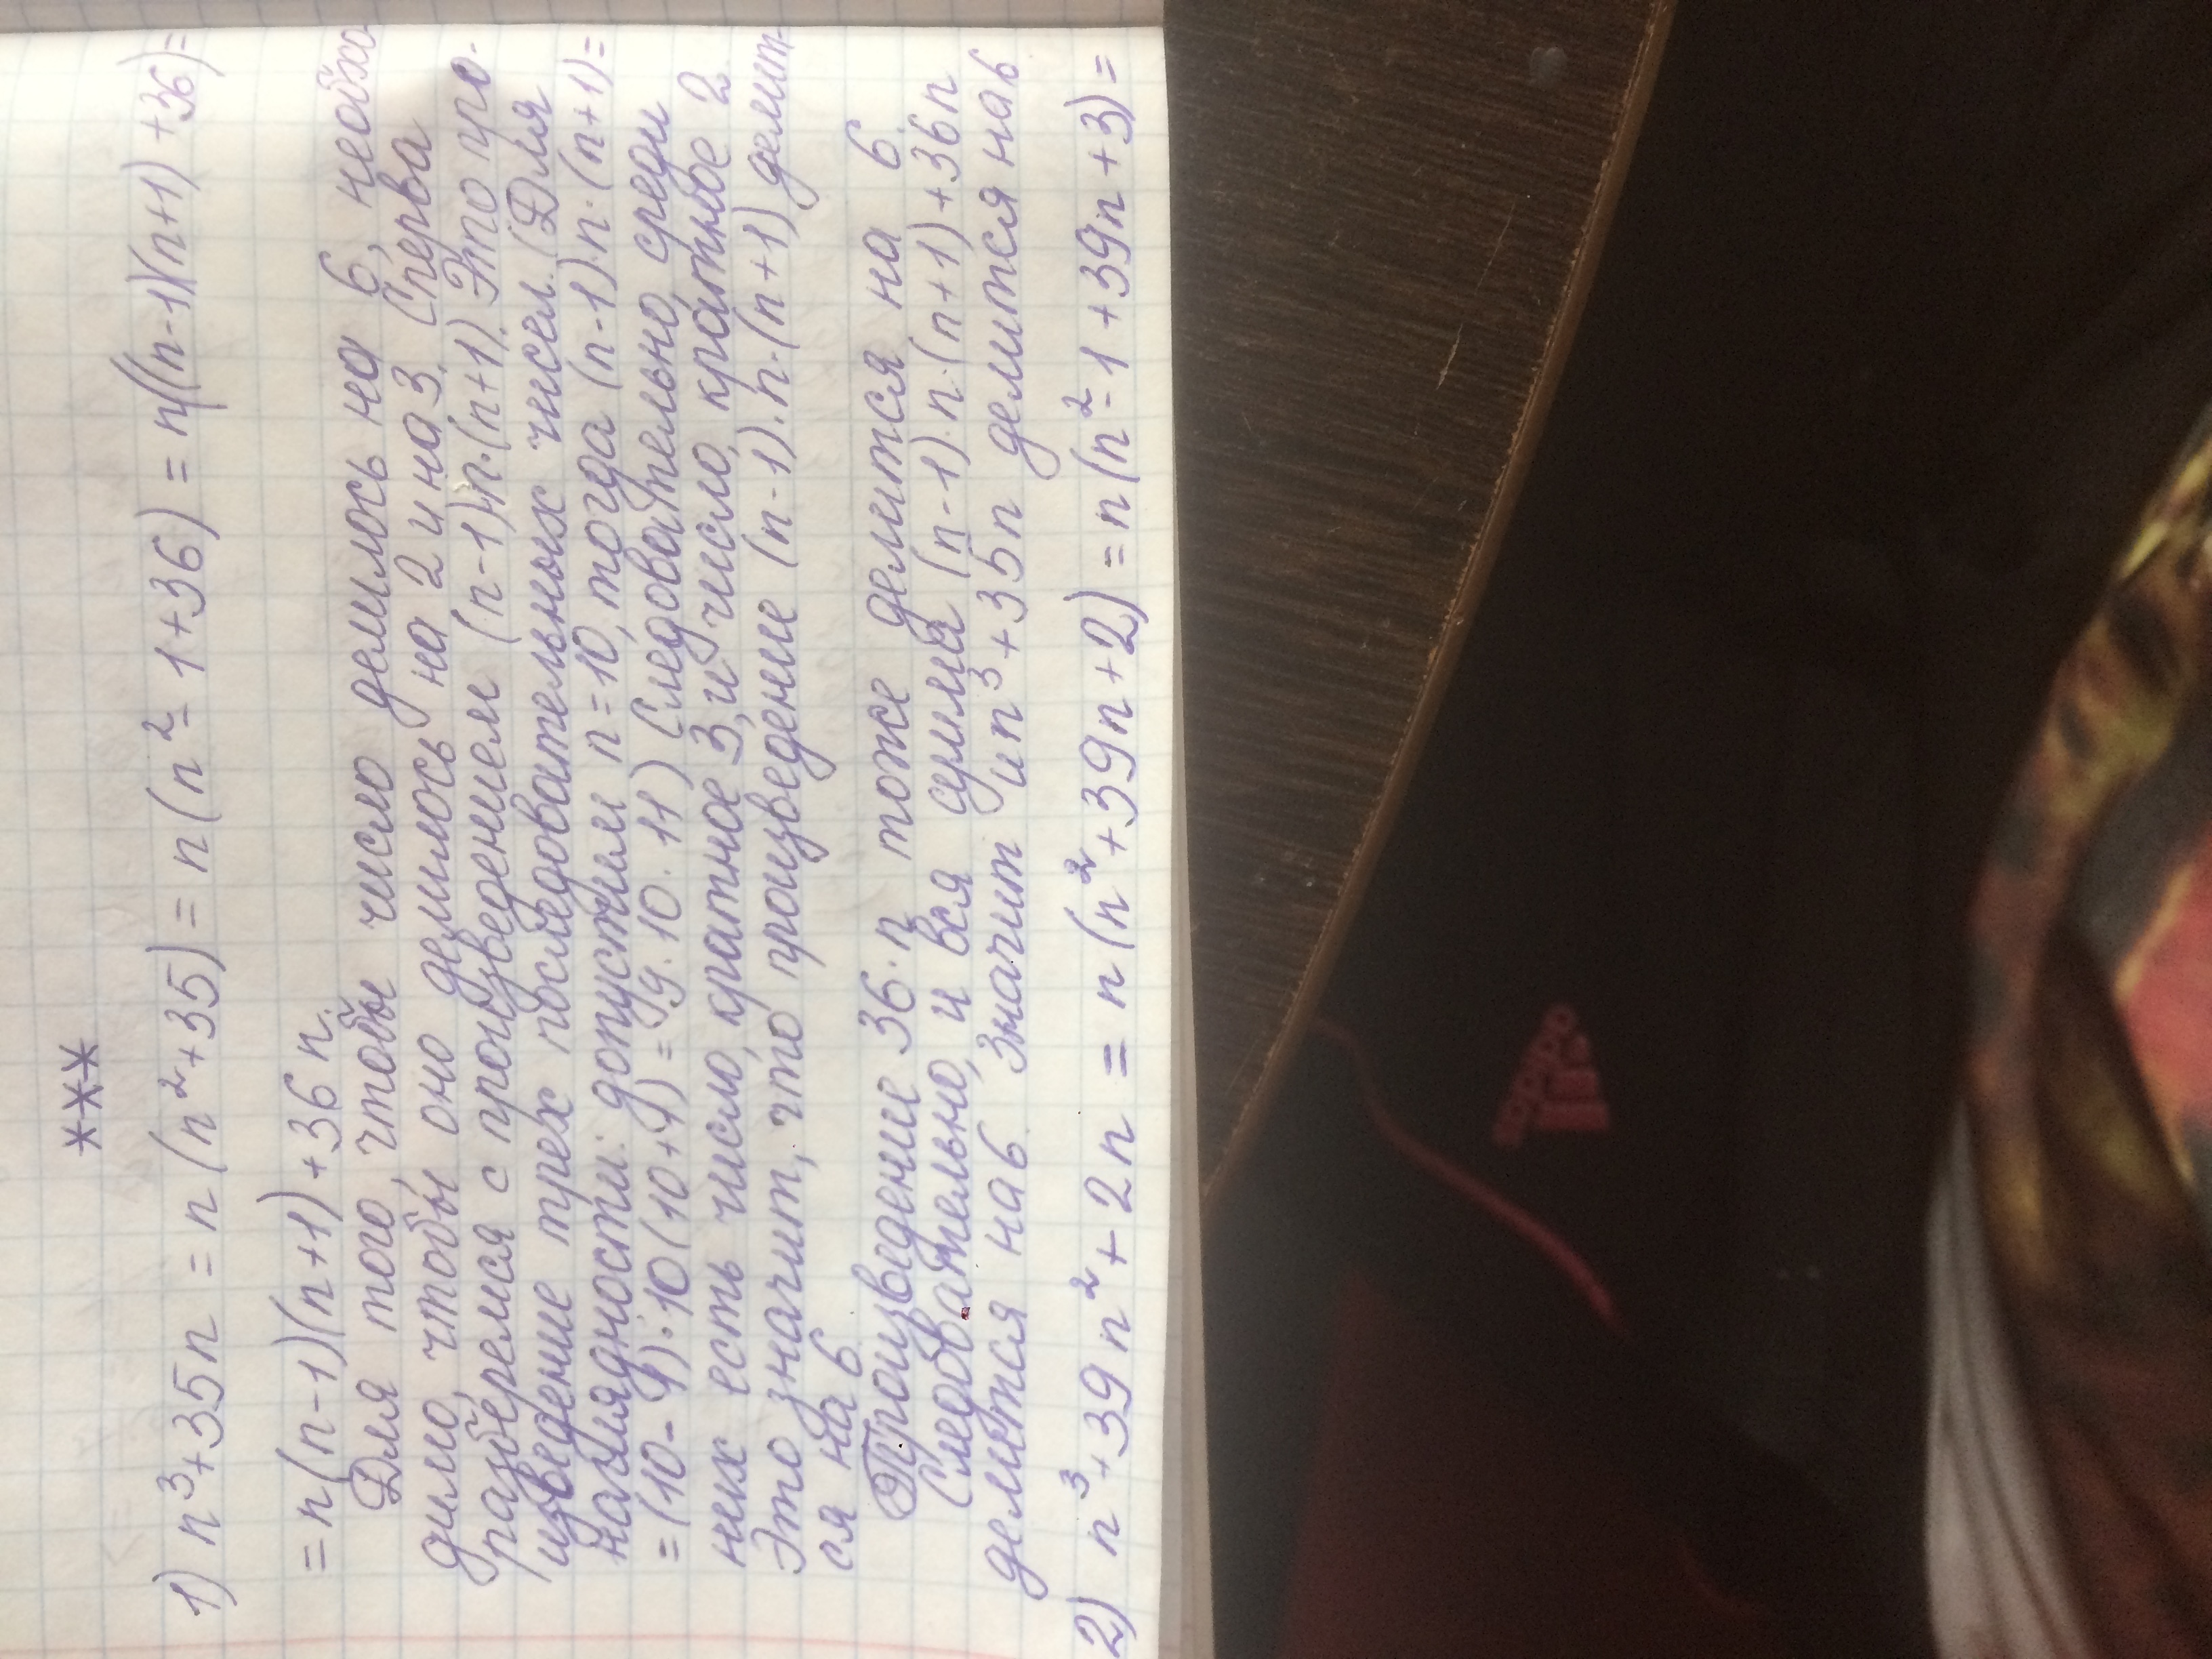 ***
1) n³+35n = n(n²+35) = n(n²-1+36) = n((n-1)(n+1)+36)=
= n(n-1)(n+1)+36n.
Для того, чтобы число делилось на 6, необхо
димо, чтобы оно делилось на 2 и на 3. Сперва
разберемся с произведением (n-1)·n·(n+1). Это про-
изведение трех последовательных чисел. (Для
наглядности: допустим n=10, тогда (n-1)·n·(n+1)=
=(10-1)·10(10+1)=9·10·11) Следовательно, среди
них есть число, кратное 3, и число, кратное 2.
Это значит, что произведение (n-1)·n·(n+1) делит-
ся на 6.
Произведение 36·n тоже делится на 6.
Следовательно, и вся сумма (n-1)·n·(n+1)+36n
делится на 6. Значит и n³+35n делится на 6
2) n³+39n²+2n = n(n²+39n+2) = n(n²-1+39n+3)=